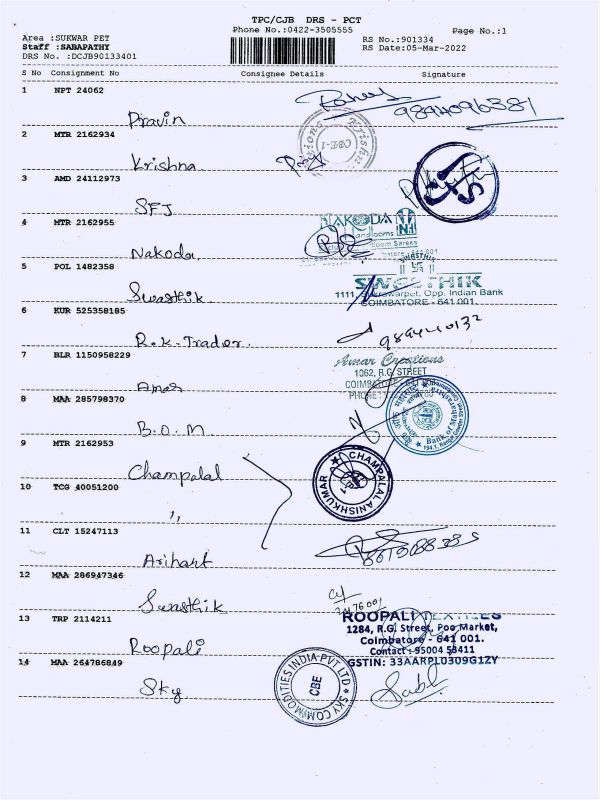 TPC/CJB DRS - PCT
Phone No.:0422-3505555
Page No.:1
Area :SUKWAR PET
Staff :SABAPATHY
DRS No. :DCJB90133401
RS No.:901334
RS Date:05-Mar-2022
S No Consignment No Consignee Details Signature
1 NPT 24062
Pravin
9894096381
2 MTR 2162934
Krishna
3 AMD 24112973
SFJ
4 MTR 2162955
NAKODA
Nakoda
5 POL 1482358
SWASTHIK
Swasthik
1111, Sukrawarpet, Opp. Indian Bank
COIMBATORE - 641 001.
6 KUR 525358185
R.K. Trader
7 BLR 1150958229
Amar Creations
1062, R.G. STREET
Amar
8 MAA 285798370
B.O.M
Bank of Maharashtra
9 MTR 2162953
Champalal
CHAMPALAL ANISHKUMAR
10 TCG 40051200
11 CLT 15247113
Arihant
12 MAA 286947346
Swasthik
13 TRP 2114211
ROOPALI TEXTILES
1284, R.G. Street, Poo Market,
Coimbatore - 641 001.
Contact : 95004 58411
GSTIN: 33AARPL0309G1ZY
Roopali
14 MAA 264786849
Sky
SKY COMMODITIES INDIA PVT LTD
CBE